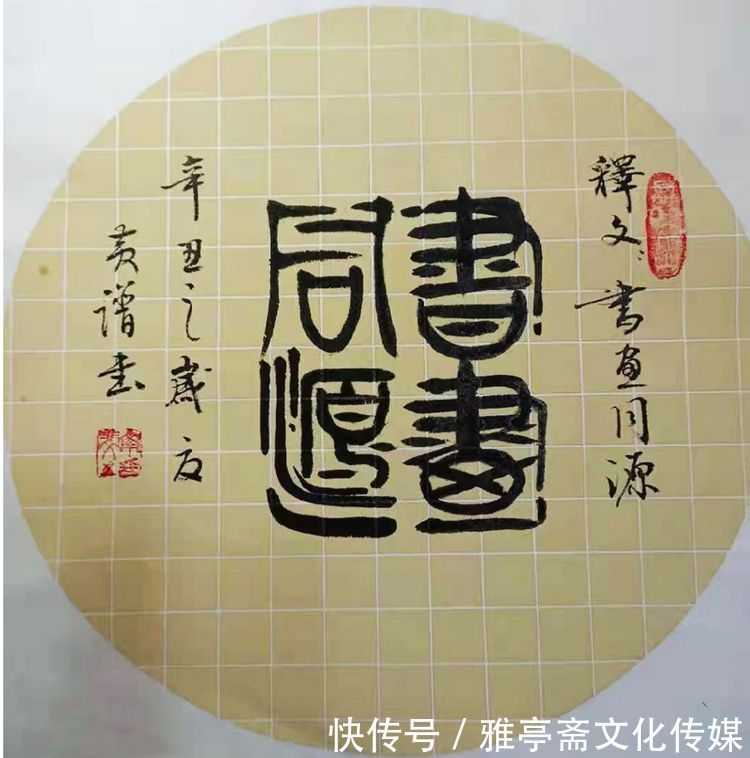 釋文：書畫同源
書畫
同源
辛丑之歲夏
黄譜書
快传号 / 雅亭斋文化传媒